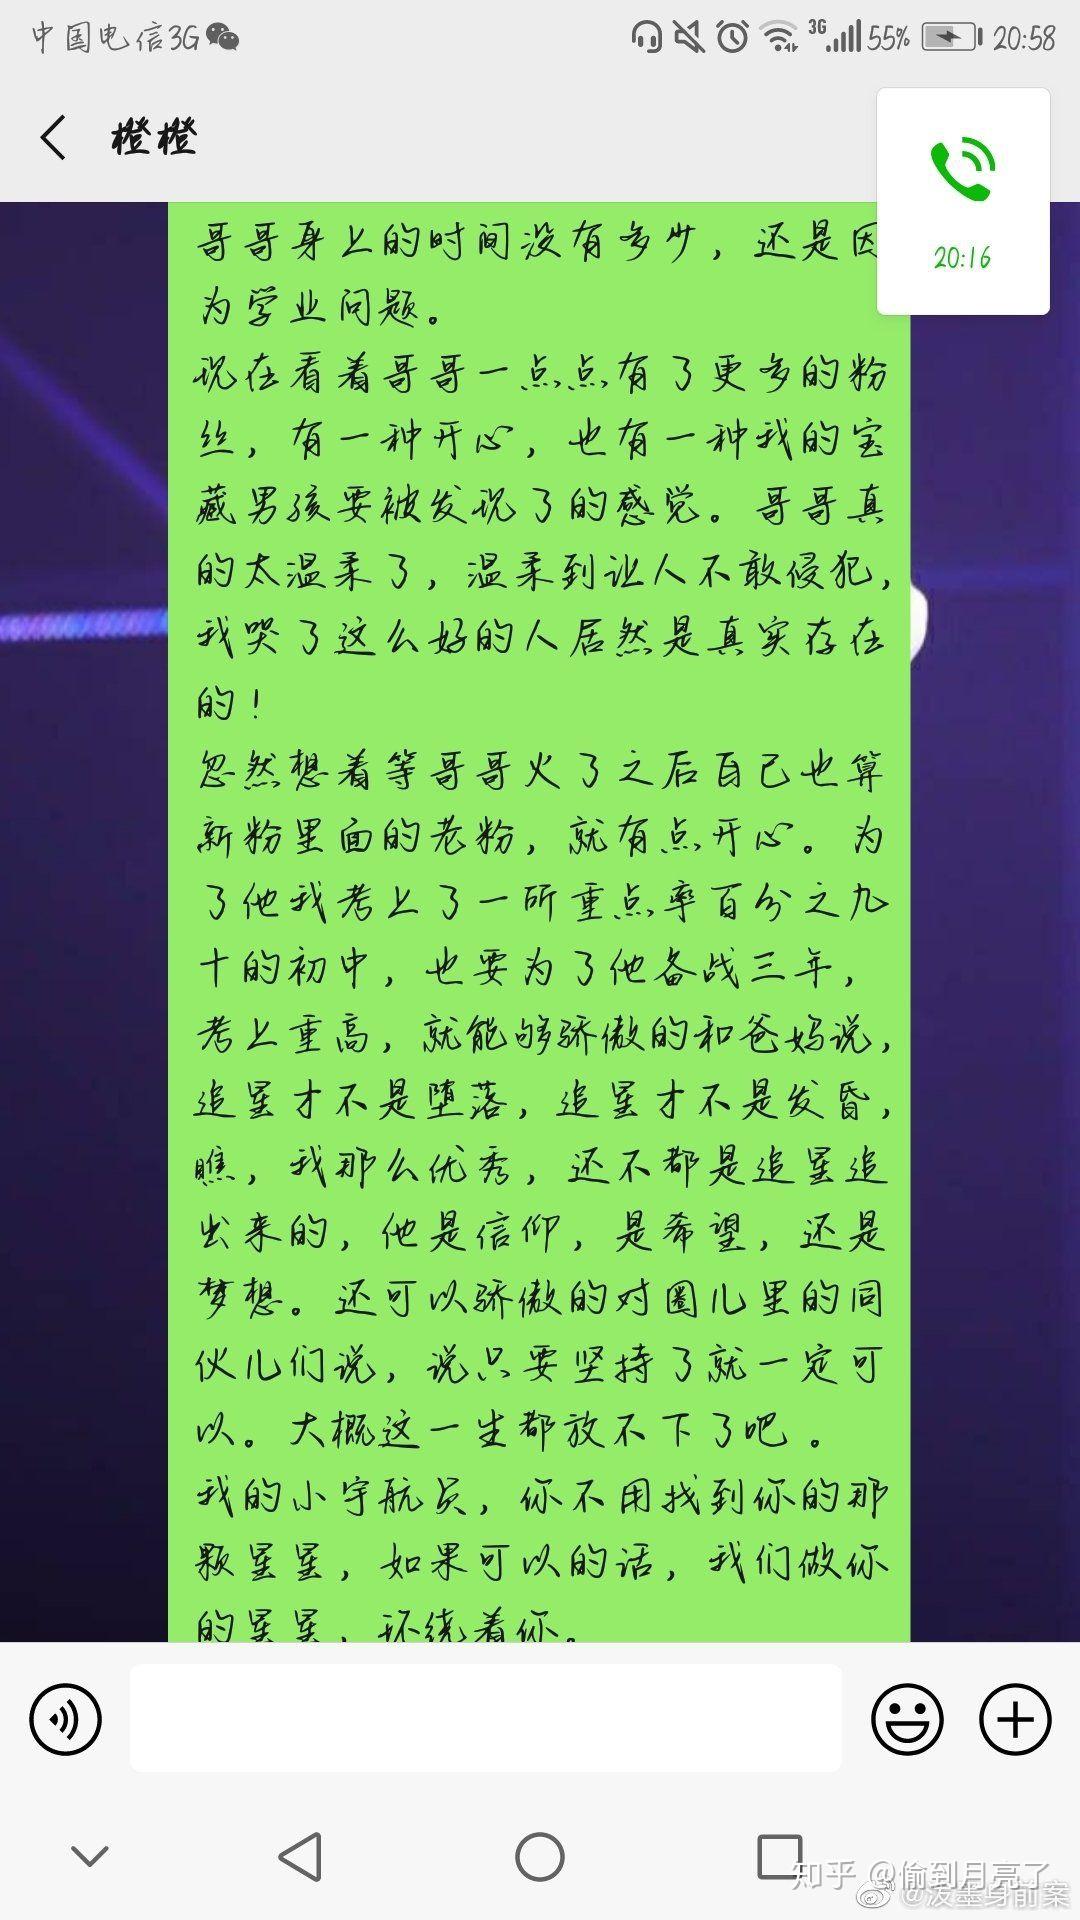 中国电信3G
3G
55%
20:58
橙橙
20:16
哥哥身上的时间没有多少，还是因
为学业问题。
现在看着哥哥一点点有了更多的粉
丝，有一种开心，也有一种我的宝
藏男孩要被发现了的感觉。哥哥真
的太温柔了，温柔到让人不敢侵犯，
我哭了这么好的人居然是真实存在
的！
忽然想着等哥哥火了之后自己也算
新粉里面的老粉，就有点开心。为
了他我考上了一所重点率百分之九
十的初中，也要为了他备战三年，
考上重高，就能够骄傲的和爸妈说，
追星才不是堕落，追星才不是发昏，
瞧，我那么优秀，还不都是追星追
出来的，他是信仰，是希望，还是
梦想。还可以骄傲的对圈儿里的同
伙儿们说，说只要坚持了就一定可
以。大概这一生都放不下了吧 。
我的小宇航员，你不用找到你的那
颗星星，如果可以的话，我们做你
的星星，环绕着你。
知乎 @偷到月亮了
@泼墨身前案